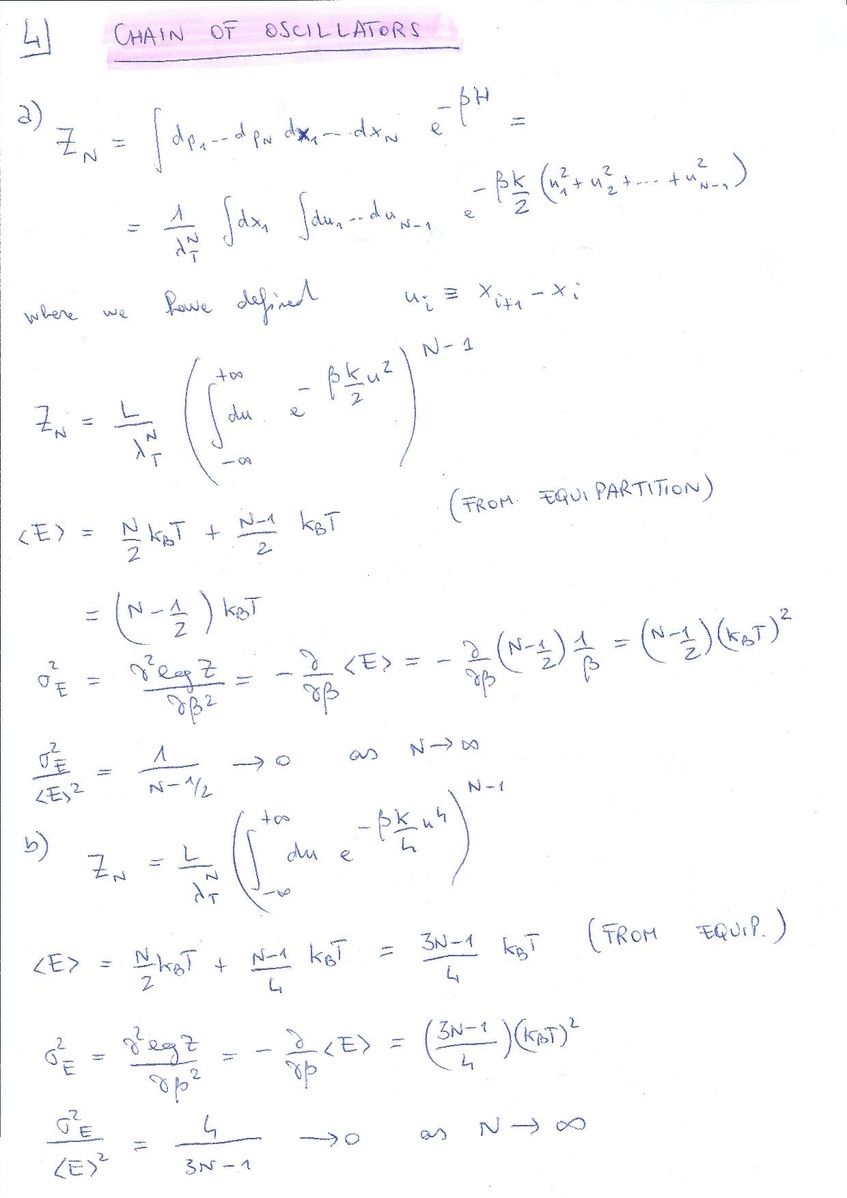 4] CHAIN OF OSCILLATORS
a) Z_N = ∫ dp_1 ... dp_N dx_1 ... dx_N e^{-βH} =
= 1/λ_T^N ∫dx_1 ∫du_1 ... du_{N-1} e^{-βk/2 (u_1^2 + u_2^2 + ... + u_{N-1}^2)}
where we have defined u_i ≡ x_{i+1} - x_i
Z_N = L/λ_T^N ( ∫_{-∞}^{+∞} du e^{-βk/2 u^2} )^{N-1}
<E> = N/2 k_BT + N-1/2 k_BT (FROM EQUIPARTITION)
= (N - 1/2) k_BT
σ_E^2 = ∂^2 log Z/∂β^2 = - ∂/∂β <E> = - ∂/∂β (N - 1/2) 1/β = (N - 1/2)(k_BT)^2
σ_E^2/<E>^2 = 1/N-1/2 → 0 as N → ∞
b) Z_N = L/λ_T^N ( ∫_{-∞}^{+∞} du e^{-βk/4 u^4} )^{N-1}
<E> = N/2 k_BT + N-1/4 k_BT = 3N-1/4 k_BT (FROM EQUIP.)
σ_E^2 = ∂^2 log Z/∂β^2 = - ∂/∂β <E> = (3N-1/4)(k_BT)^2
σ_E^2/<E>^2 = 4/3N-1 → 0 as N → ∞